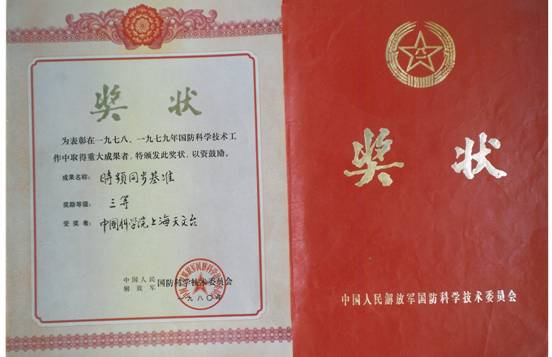 奖状
为表彰在一九七八、一九七九年国防科学技术工
作中取得重大成果者，特颁发此奖状，以资鼓励。
成果名称：時頻同步基准
奖励等级：三等
受奖者：中国科学院上海天文台
中国人民
解放军 国防科学技术委员会
一九八〇年
奖状
中国人民解放军国防科学技术委员会